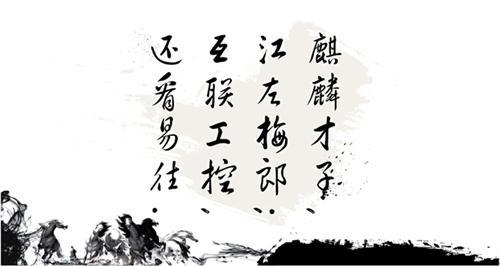 麒麟才子、
江左梅郎：
互联工控、
还看易往.